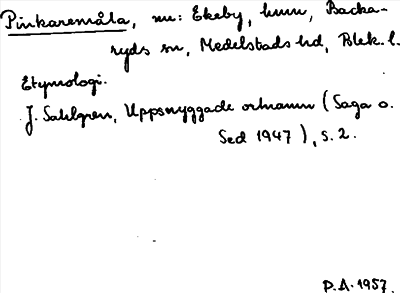 Pinkaremåla, nu: Ekeby, hmn, Backa-
ryds sn, Medelstads hd, Blek. l.
Etymologi.
J. Sahlgren, Uppsnyggade ortnamn (Saga o.
Sed 1947), s. 2.
P.A. 1957.